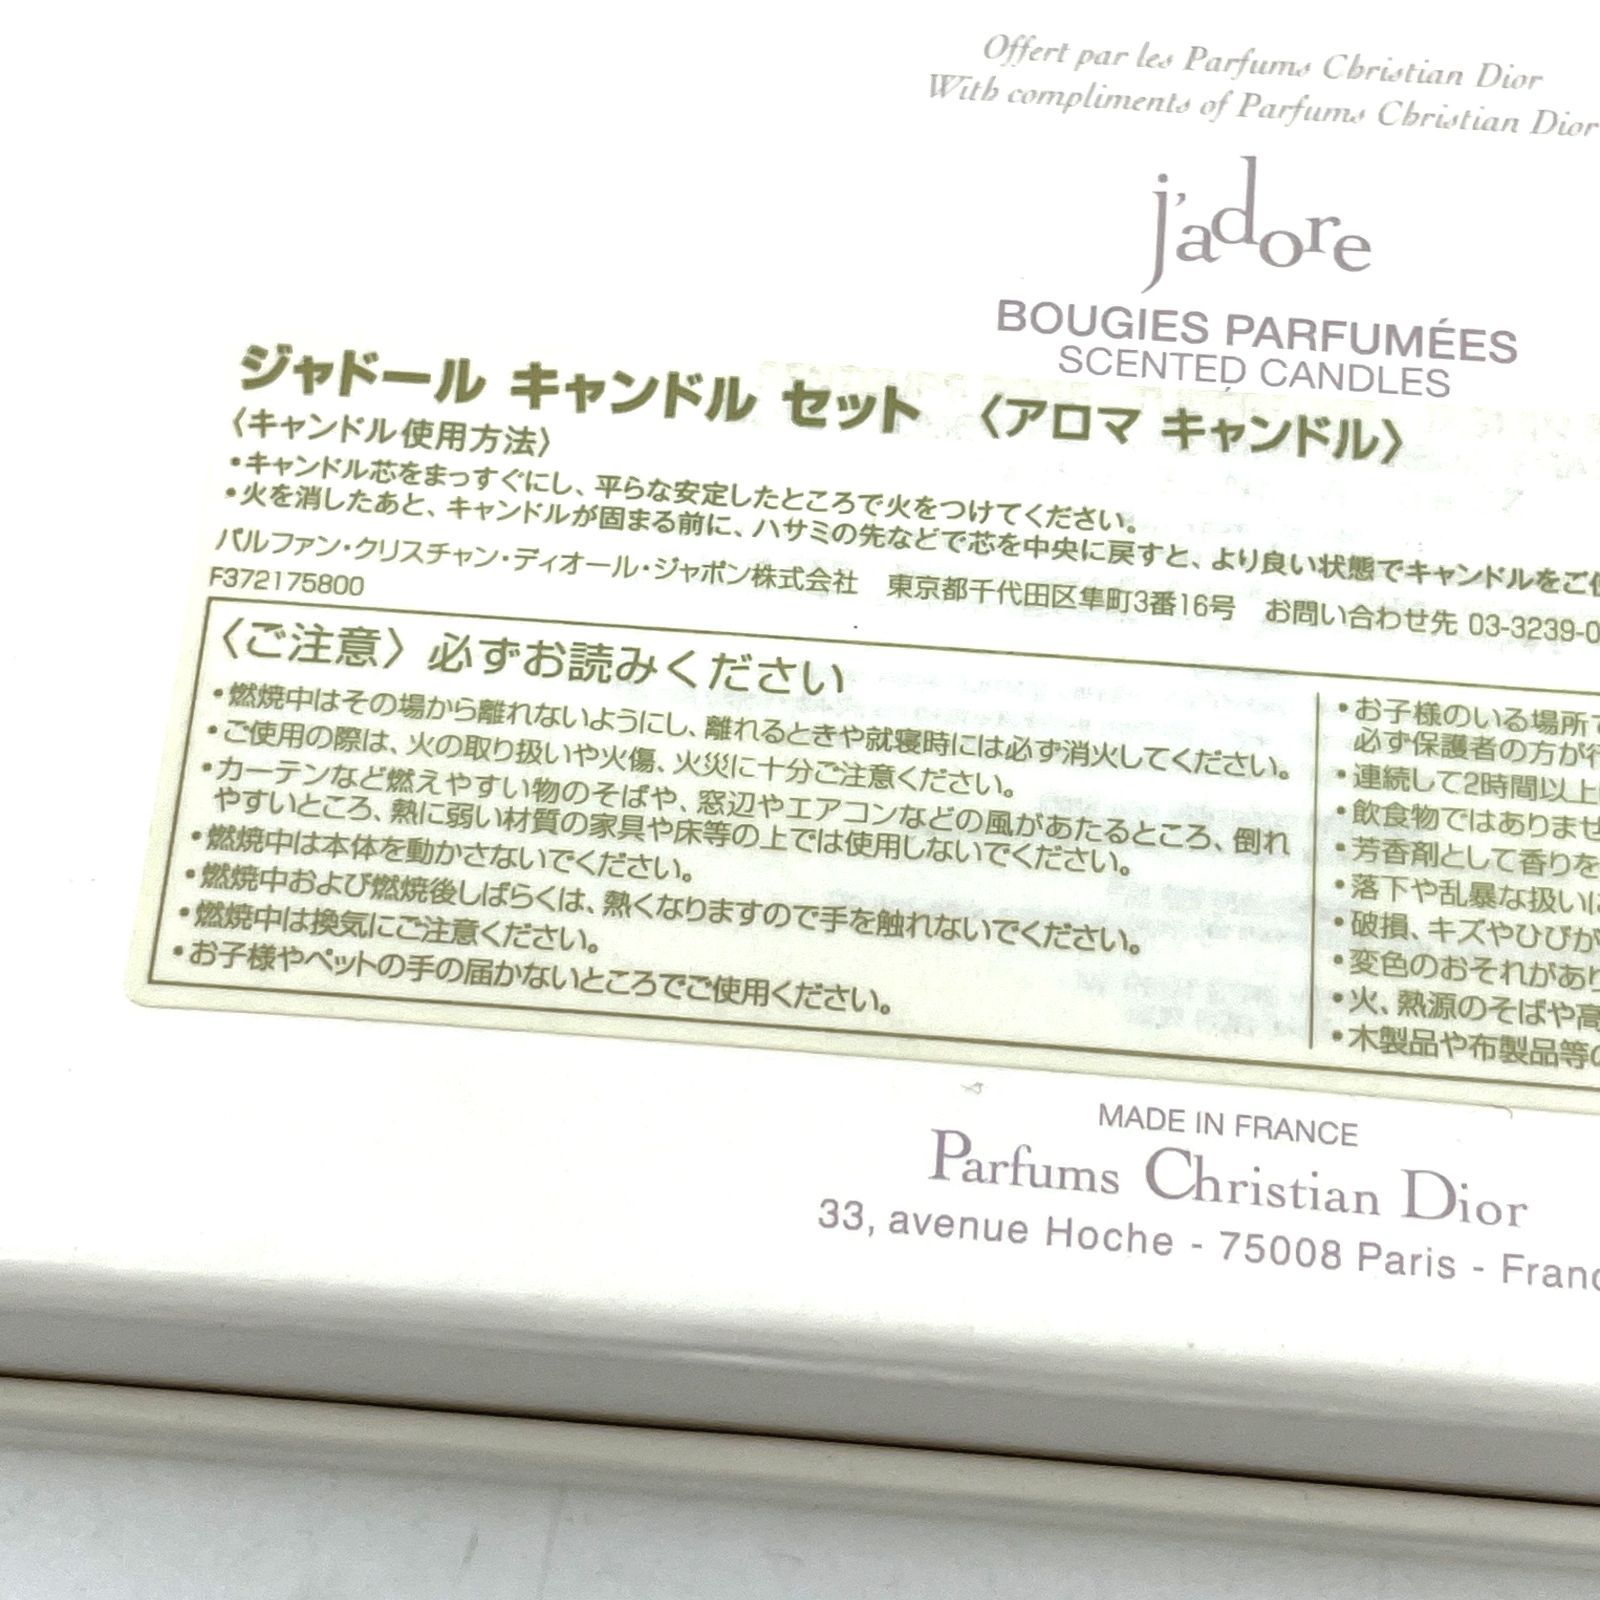 Offert par les Parfums Christian Dior
With compliments of Parfums Christian Dior
j'adore
BOUGIES PARFUMÉES
SCENTED CANDLES
ジャドール キャンドル セット 〈アロマ キャンドル〉
〈キャンドル使用方法〉
•キャンドル芯をまっすぐにし、平らな安定したところで火をつけてください。
•火を消したあと、キャンドルが固まる前に、ハサミの先などで芯を中央に戻すと、より良い状態でキャンドルをご使
パルファン・クリスチャン・ディオール・ジャポン株式会社 東京都千代田区隼町3番16号 お問い合わせ先 03-3239-0
F372175800
〈ご注意〉必ずお読みください
•燃焼中はその場から離れないようにし、離れるときや就寝時には必ず消火してください。
•ご使用の際は、火の取り扱いや火傷、火災に十分ご注意ください。
•カーテンなど燃えやすい物のそばや、窓辺やエアコンなどの風があたるところ、倒れ
やすいところ、熱に弱い材質の家具や床等の上では使用しないでください。
•燃焼中は本体を動かさないでください。
•燃焼中および燃焼後しばらくは、熱くなりますので手を触れないでください。
•燃焼中は換気にご注意ください。
•お子様やペットの手の届かないところでご使用ください。
•お子様のいる場所で
必ず保護者の方が行
•連続して2時間以上
•飲食物ではありませ
•芳香剤として香りを
•落下や乱暴な扱いに
•破損、キズやひびが
•変色のおそれがあり
•火、熱源のそばや高
•木製品や布製品等の
MADE IN FRANCE
Parfums Christian Dior
33, avenue Hoche - 75008 Paris - Franc